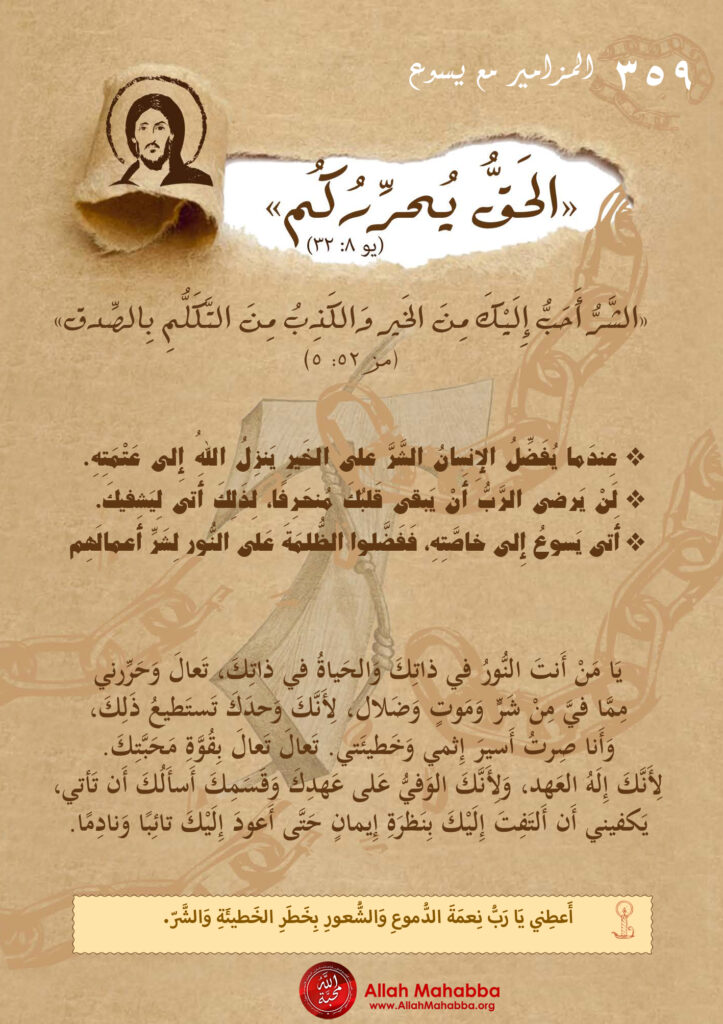 ٣٥٩ المزامير مع يسوع
«الحَقُّ يُحرِّرُكُم»
(يو ٨: ٣٢)
«الشَّرُّ أَحَبُّ إِلَيْكَ مِنَ الخَيرِ وَالكَذِبُ مِنَ التَّكَلُّمِ بِالصِّدق»
(مز ٥٢: ٥)
❖ عِندَما يُفَضِّلُ الإِنسانُ الشَّرَّ على الخَيرِ يَنزِلُ اللهُ إِلى عَتْمَتِهِ.
❖ لَنْ يَرضى الرَّبُّ أَنْ يَبقى قَلبُكَ مُنحَرِفًا، لِذَلِكَ أَتى لِيَشفيكَ.
❖ أَتى يَسوعُ إِلى خاصَّتِهِ، فَفَضَّلوا الظُّلمَةَ عَلى النُّور لِشَرِّ أَعمالَهِم
يَا مَنْ أَنتَ النُّورُ في ذاتِكَ وَالحَياةُ في ذاتِكَ، تَعالَ وَحَرِّرني
مِمَّا فيَّ مِنْ شَرٍّ وَمَوتٍ وَضَلال، لِأَنَّكَ وَحدَكَ تَستَطيعُ ذَلِكَ،
وَأَنا صِرتُ أَسيرَ إِثمي وَخَطيئَتي. تَعالَ تَعالَ بِقُوَّةِ مَحَبَّتِكَ.
لِأَنَّكَ إِلَهُ العَهد، وَلِأَنَّكَ الوَفيُّ عَلى عَهدِكَ وَقَسَمِكَ أَسأَلُكَ أَن تَأتي،
يَكفيني أَن أَلتَفِتَ إِلَيْكَ بِنَظرَةِ إِيمانٍ حَتَّى أَعودَ إِلَيْكَ تائِبًا وَنادِمًا.
أَعطِني يَا رَبُّ نِعمَةَ الدُّموعِ وَالشُّعورِ بِخَطَرِ الخَطيئَةِ وَالشَّرّ.
الله محبة
Allah Mahabba
www.AllahMahabba.org